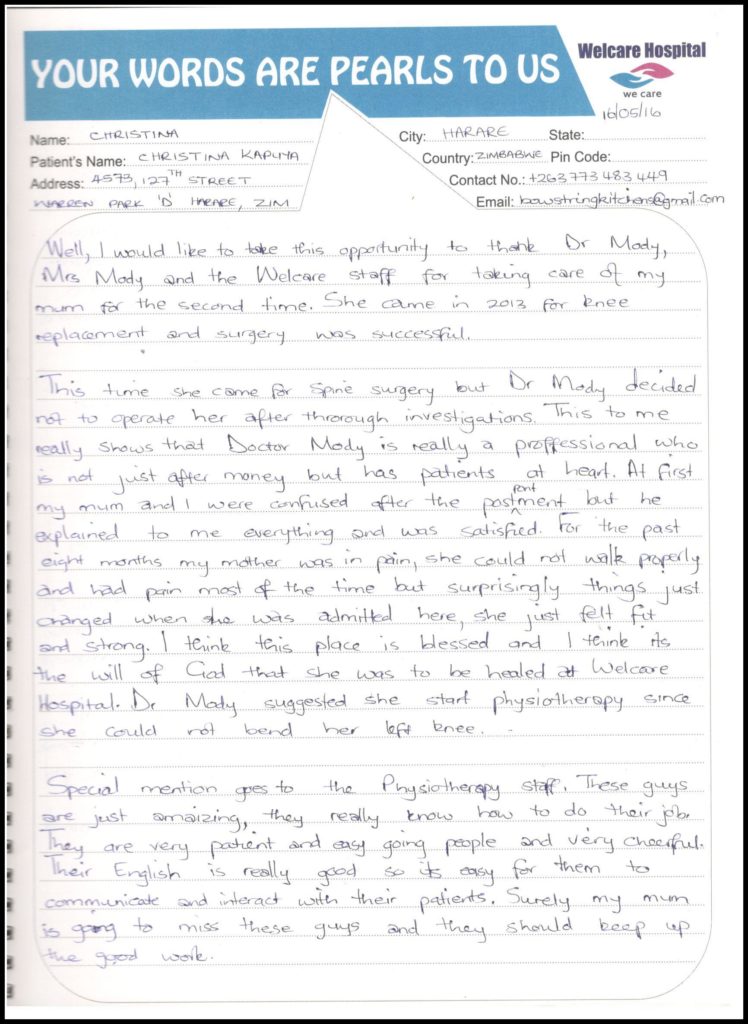 YOUR WORDS ARE PEARLS TO US
Welcare Hospital
we care
16/05/16
Name: CHRISTINA
City: HARARE State:
Patient's Name: CHRISTINA KAPUYA
Country: ZIMBABWE Pin Code:
Address: 4573, 127TH STREET
Contact No.: +263 773 483 449
WARREN PARK 'D' HARARE, ZIM
Email: bowstringkitchens@gmail.com
Well, I would like to take this opportunity to thank Dr Mody,
Mrs Mody and the Welcare staff for taking care of my
mum for the second time. She came in 2013 for knee
replacement and surgery was successful.
This time she came for spine surgery but Dr Mody decided
not to operate her after throrough investigations. This to me
really shows that Doctor Mody is really a proffessional who
is not just after money but has patients at heart. At first
my mum and I were confused after the postpontment but he
explained to me everything and was satisfied. For the past
eight months my mother was in pain, she could not walk properly
and had pain most of the time but surprisingly things just
changed when she was admitted here, she just felt fit
and strong. I think this place is blessed and I think its
the will of God that she was to be healed at Welcare
Hospital. Dr Mody suggested she start physiotherapy since
she could not bend her left knee.
Special mention goes to the Physiotherapy staff. These guys
are just amaizing, they really know how to do their job.
They are very patient and easy going people and very cheerful.
Their English is really good so its easy for them to
communicate and interact with their patients. Surely my mum
is going to miss these guys and they should keep up
the good work.